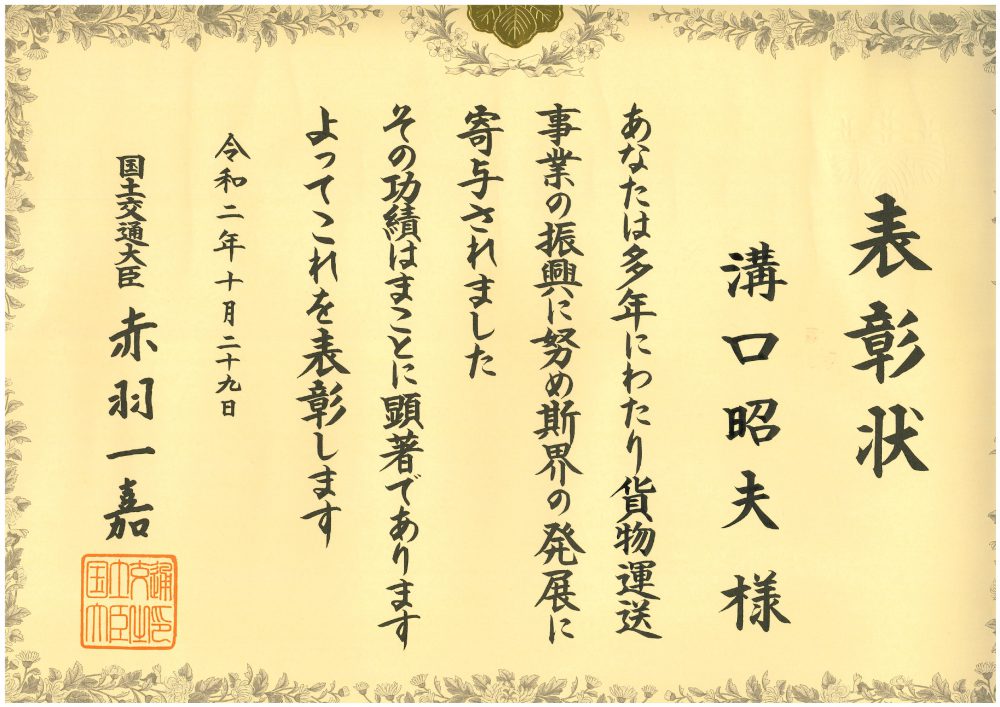 表彰状
溝口昭夫様
あなたは多年にわたり貨物運送
事業の振興に努め斯界の発展に
寄与されました
その功績はまことに顕著であります
よってこれを表彰します
令和二年十月二十九日
国土交通大臣 赤羽一嘉
国土交通大臣之印